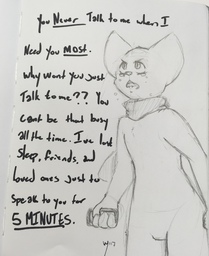 you Never Talk to me when I
Need you most.
Why wont you just
Talk to me?? You
cant be that busy
all the time. I've lost
Sleep, friends, and
loved ones just to
speak to you for
5 MINUTES.